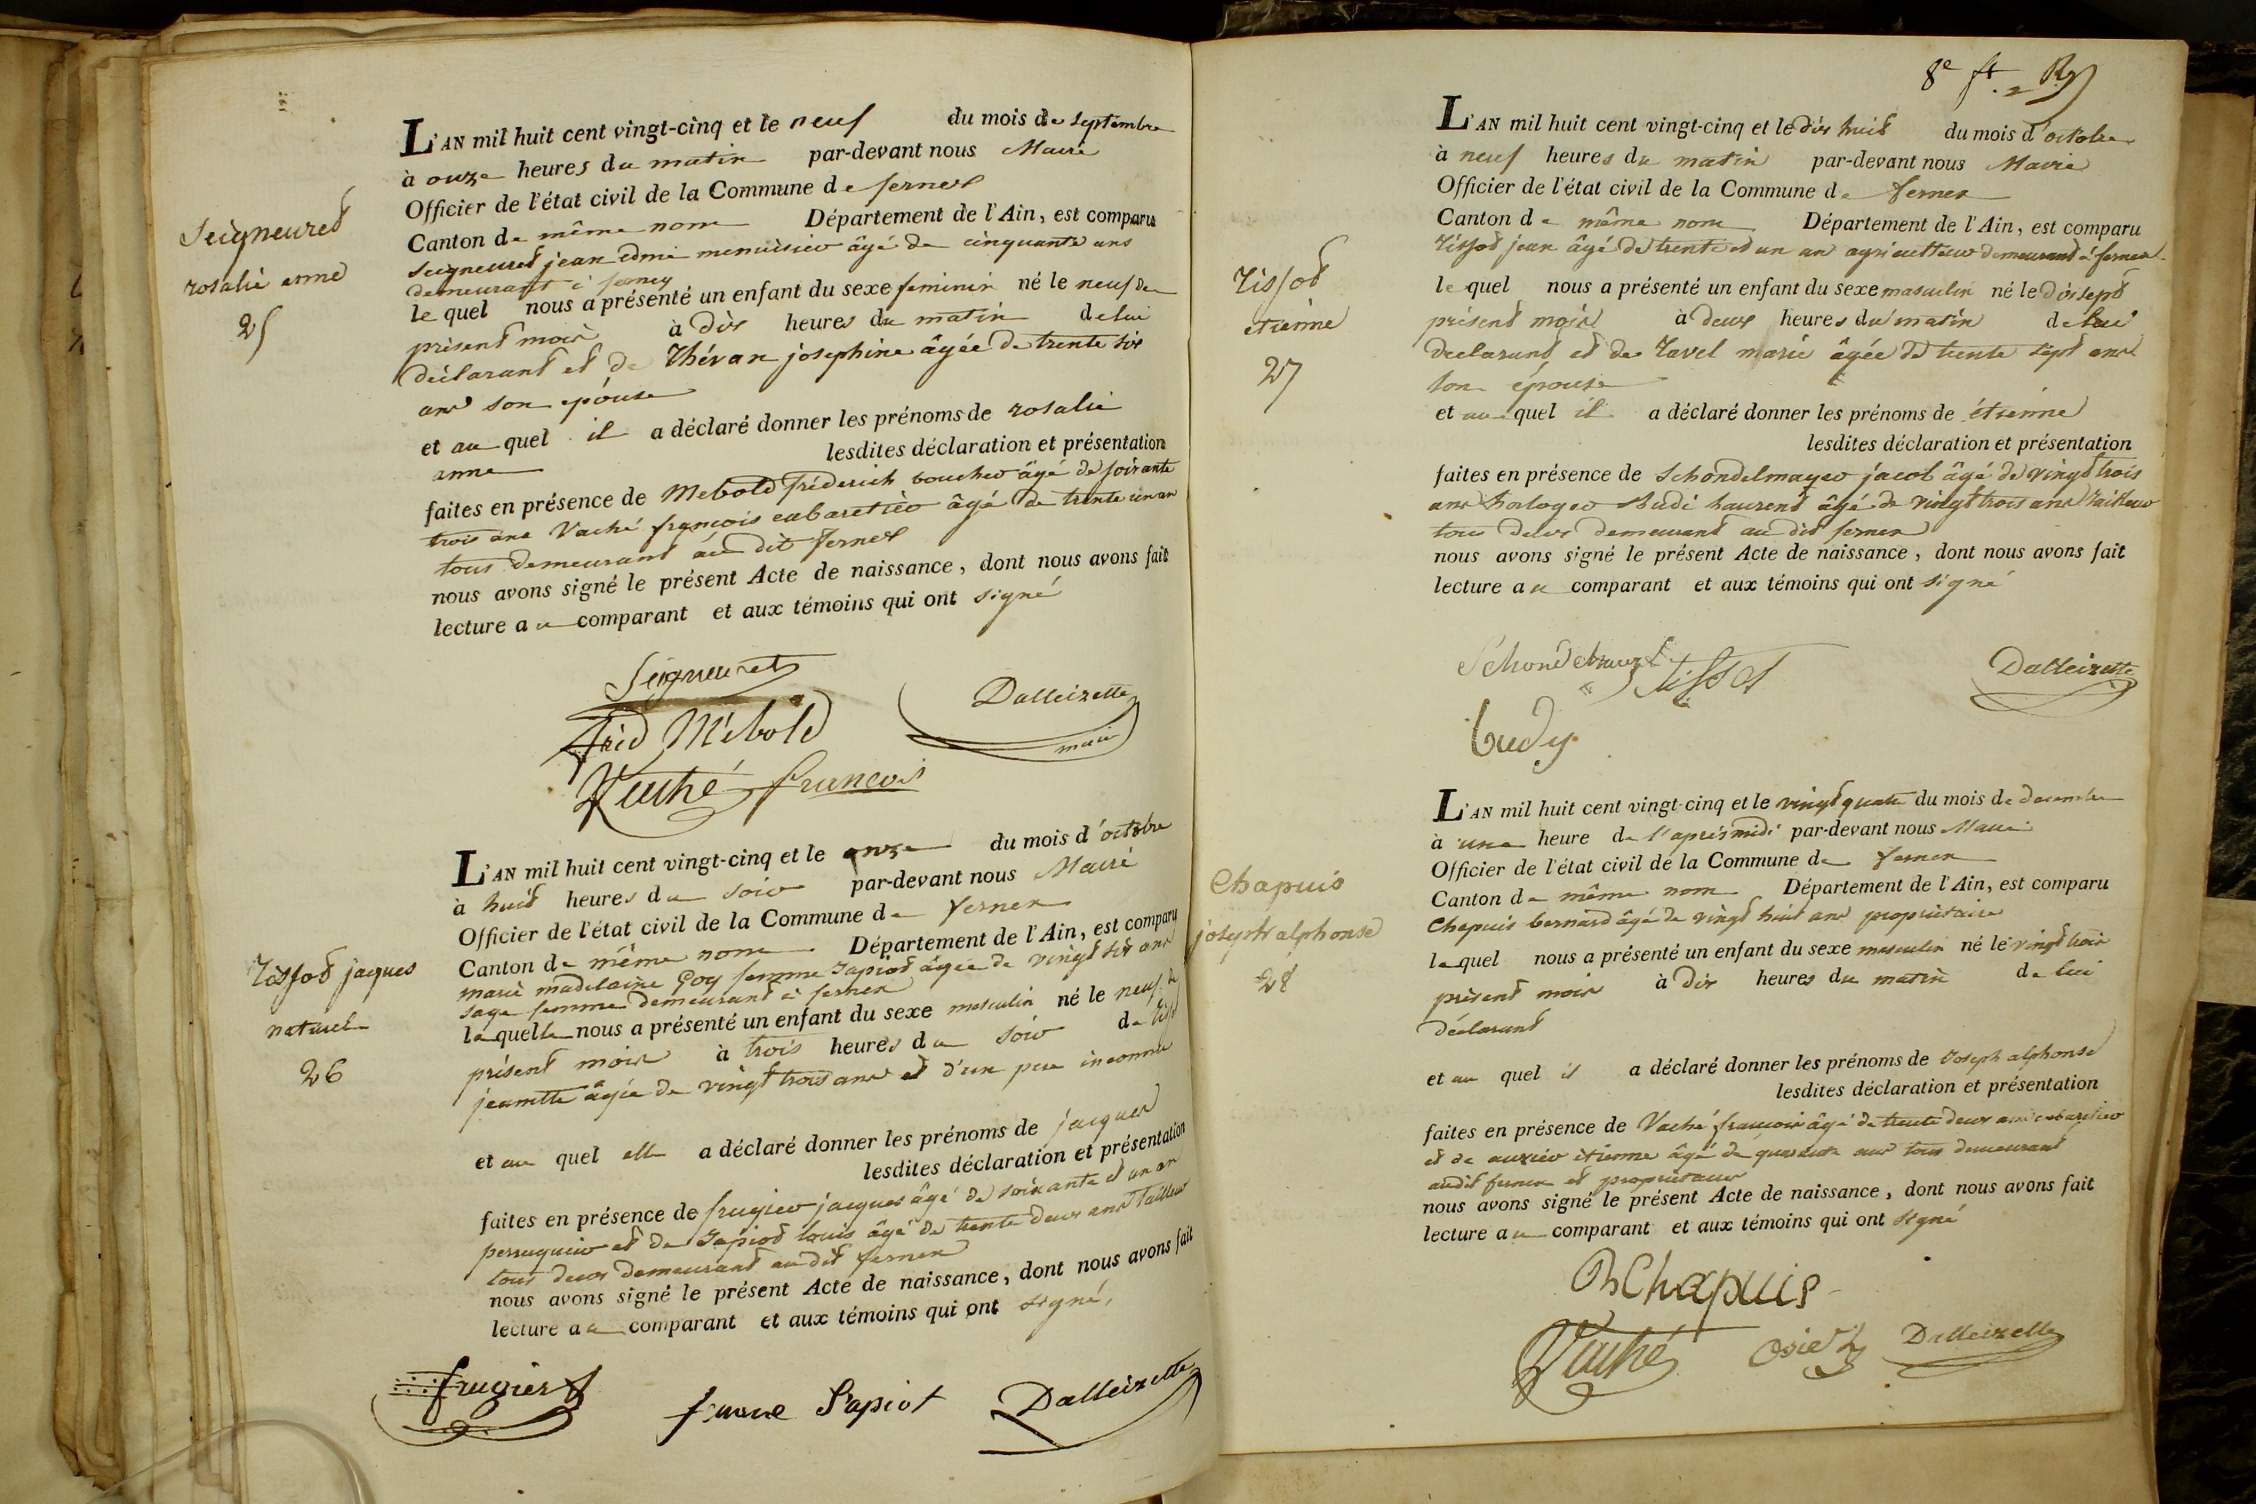 Seigneuret
rosalie anne
25
L'AN mil huit cent vingt-cinq et le neuf du mois de septembre
à onze heures du matin par-devant nous Maire
Officier de l'état civil de la Commune de fernex
Canton de même nom Département de l'Ain, est comparu
Seigneuret jean edmé menuisier âgé de cinquante ans
demeurant à ferney
le quel nous a présenté un enfant du sexe feminin né le neuf du
présent mois à dix heures du matin de lui
déclarant et de Thévan josephine âgée de trente six
ans son épouse
et au quel il a déclaré donner les prénoms de rosalie
anne lesdites déclaration et présentation
faites en présence de Mebold fréderich boucher âgé de soixante
trois ans Vaché françois cabaretier âgé de trente un an
tous demeurant au dit fernex
nous avons signé le présent Acte de naissance, dont nous avons fait
lecture au comparant et aux témoins qui ont signé
Seigneuret
Dalleizette
maire
Fried Mebold
Vaché françois
Tissot jaques
naturel
26
L'AN mil huit cent vingt-cinq et le onze du mois d'octobre
à huit heures du soir par-devant nous Maire
Officier de l'état civil de la Commune de fernex
Canton de même nom Département de l'Ain, est comparu
marie madelaine Goy femme Sapiot âgée de vingt six ans
sage femme demeurant à fernex
laquelle nous a présenté un enfant du sexe masculin né le neuf du
présent mois à trois heures du soir de Tissot
jeanette âgée de vingt trois ans et d'un pere inconnu
et au quel elle a déclaré donner les prénoms de jacques
lesdites déclaration et présentation
faites en présence de frugier jacques âgé de soixante et un an
perruquier et de Sapiot louis âgé de trente deux ans tailleur
tous deux demeurant au dit fernex
nous avons signé le présent Acte de naissance, dont nous avons fait
lecture au comparant et aux témoins qui ont signé,
frugier
femme Sapiot
Dalleizette
8e ft.
L'AN mil huit cent vingt-cinq et le dix huit du mois d'octobre
à neuf heures du matin par-devant nous Maire
Officier de l'état civil de la Commune de fernex
Canton de même nom Département de l'Ain, est comparu
Tissot jean âgé de trente et un an agriculteur demeurant à fernex
le quel nous a présenté un enfant du sexe masculin né le dix sept
présent mois à deux heures du matin de lui
declarant et de Tavel marie âgée de trente sept ans
son épouse
et au quel il a déclaré donner les prénoms de étienne
lesdites déclaration et présentation
faites en présence de Schondelmayer jacob âgé de vingt trois
ans horloger Budi laurent âgé de vingt trois ans tailleur
tous deux demeurant au dit fernex
nous avons signé le présent Acte de naissance, dont nous avons fait
lecture au comparant et aux témoins qui ont signé
Tissot
etienne
27
tissot
Dalleizette
budy
Chapuis
joseph alphonse
28
L'AN mil huit cent vingt-cinq et le vingt quatre du mois de decembre
à une heure de l'après midi par-devant nous Maire
Officier de l'état civil de la Commune de fernex
Canton de même nom Département de l'Ain, est comparu
Chapuis bernard âgé de vingt huit ans propriétaire
lequel nous a présenté un enfant du sexe masculin né le vingt trois
présent mois à dix heures du matin de lui
déclarant
et au quel il a déclaré donner les prénoms de Joseph alphonse
lesdites déclaration et présentation
faites en présence de Vaché françois âgé de trente deux ans cabaretier
et de auzier étienne âgé de quarante ans tous demeurant
audit fernex et propriétaires
nous avons signé le présent Acte de naissance, dont nous avons fait
lecture au comparant et aux témoins qui ont signé
Chapuis
Vaché
Dalleizette